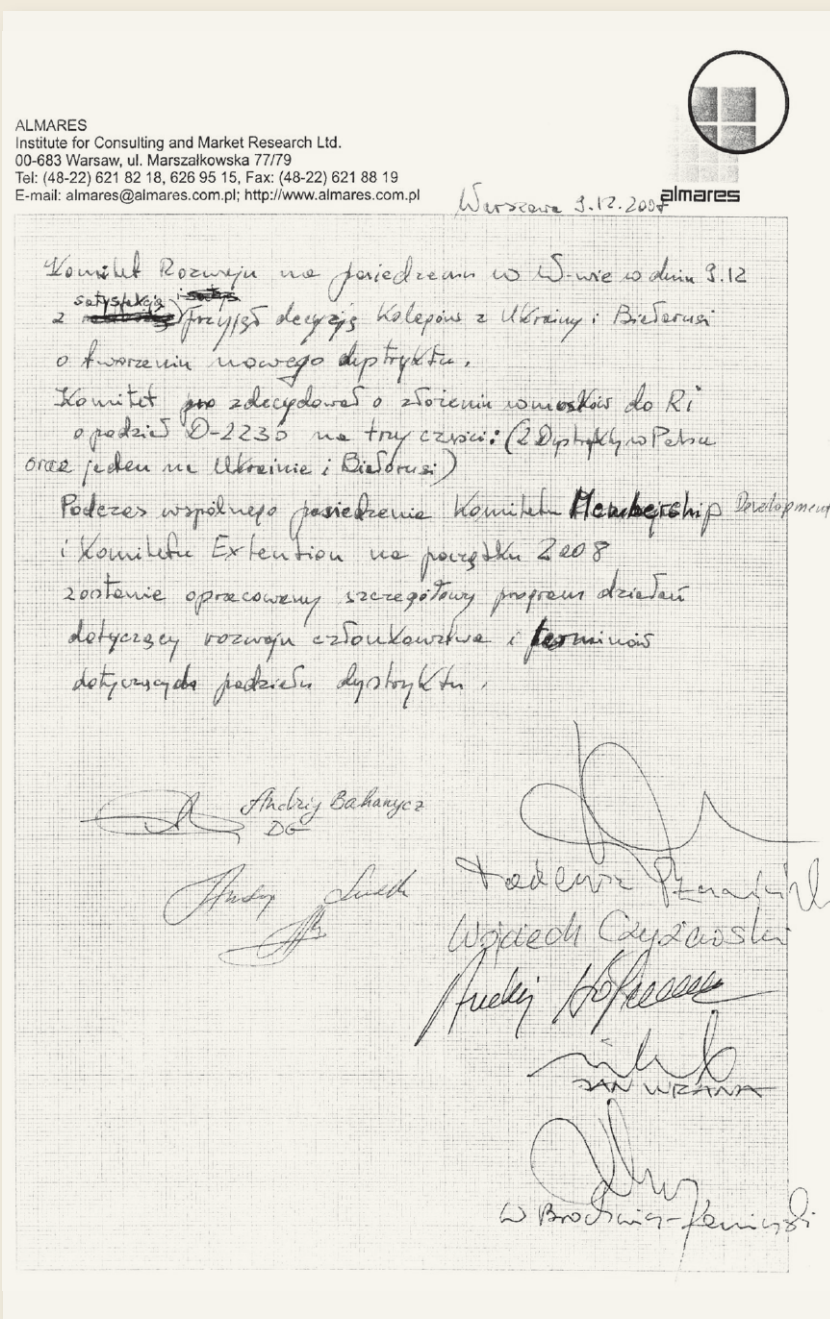 ALMARES
Institute for Consulting and Market Research Ltd.
00-683 Warsaw, ul. Marszałkowska 77/79
Tel: (48-22) 621 82 18, 626 95 15, Fax: (48-22) 621 88 19
E-mail: almares@almares.com.pl; http://www.almares.com.pl
almares
Warszawa 9.12.2007
Komitet Rozwoju na posiedzeniu w W-wie w dniu 9.12
z satysfakcją przyjął decyzję Kolegów z Ukrainy i Białorusi
o tworzeniu nowego dystryktu.
Komitet zdecydował o złożeniu wniosków do RI
o podział D-2230 na trzy części: (2 Dystrykty w Polsce
oraz jeden na Ukrainie i Białorusi)
Podczas wspólnego posiedzenia Komitetu Membership Development
i Komitetu Extention na początku 2008
zostanie opracowany szczegółowy program działań
dotyczący rozwoju członkowstwa i terminów
podziału dystryktu.
Andriy Bahanycz
DG
Tadeusz
Wojciech Czyżewski
Andrzej
JAN WRANA
W